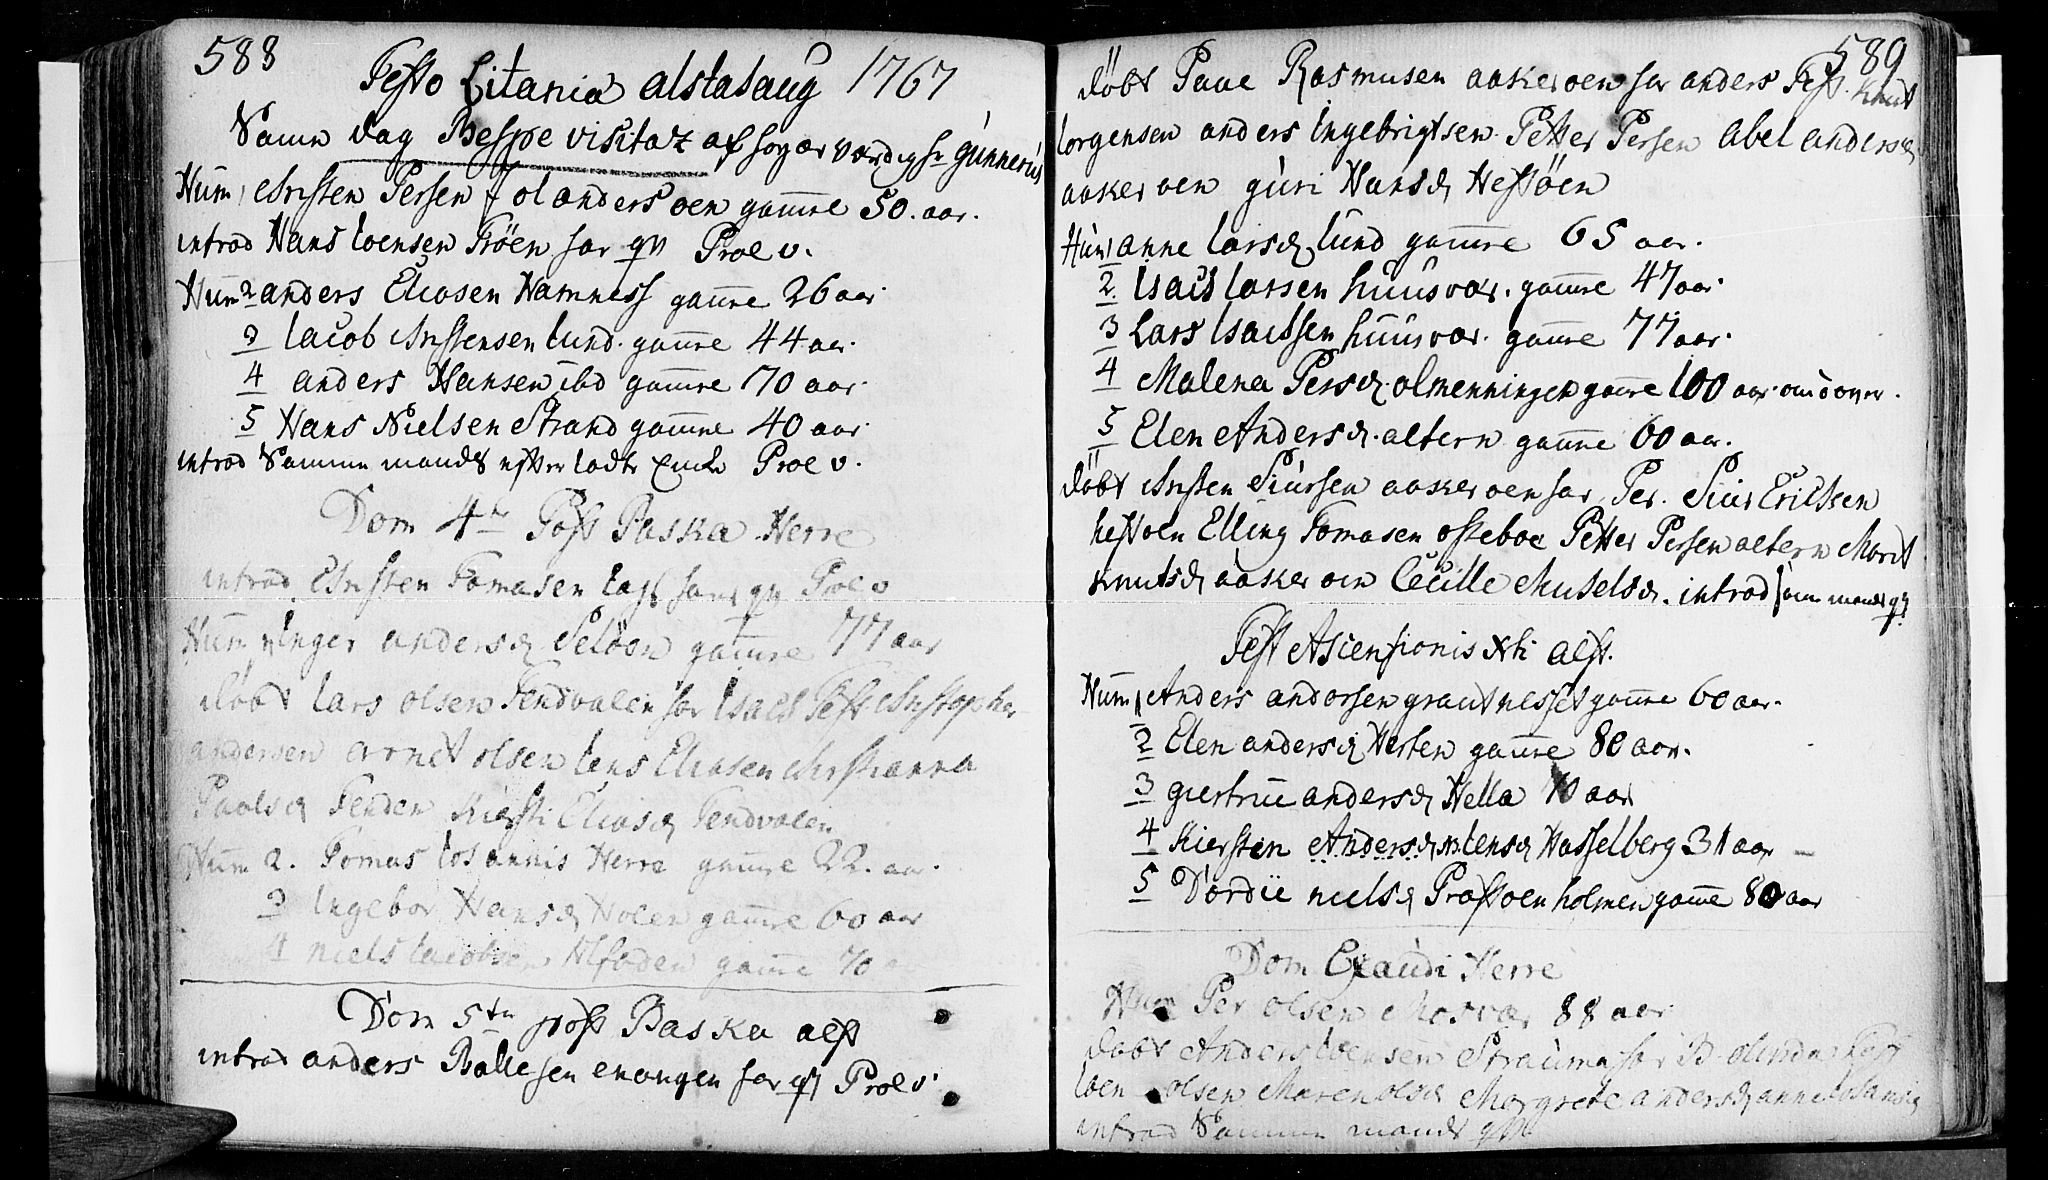 588
Festo Litania alstahaug 1767
Samme dag Bispe visitaz af høyær værdig hr Gunnerus
Hum 1 Christen Persen olanders oen gamle 50. aar.
introd Hans Joensen Frøen har qv Prol v.
Hum 2 anders Eliasen Hamness gamle 26 aar
3 Jacob Christensen Lund. gamle 44 aar.
4 anders Hansen ibd gamle 70 aar.
5 Hans Nielsen Strand gamle 40 aar
introd Samme mands efter ladte Prol v.
Dom 4te Post Paska Herrø
introd. Christen Tomasen qv Prol v
Hum 1 Inger andersd Seløen gamle 77 aar
døbt Lars olsen Tendvalen far Isach Test Christopher
andersen arnt olsen Jens Eliasen Christianna
Paalsd Tenden Kirsti Eliasd Tendvalen
Hum 2. Tomas Johannis Herrø gamle 22. aar.
3 Ingebor Hansd Holen gamle 60 aar
4 niels Jacobsen gamle 70
Dom 5te post Paska alst
introd anders Rallesen enangen har qv Prol v.
589
døbt Paul Rasmusen aakeroen far anders Test. Knut
Jorgensen anders Ingebrigtsen Petter Persen Abel andersd
aakeroen guri Hansd Hestøen
Hum 1 anne Larsd Lund gamle 65 aar.
2. Isach Larsen huusvær. gamle 47 aar.
3 Lars Isachsen huusvær. gamle 77 aar.
4 Malena Persd. olmenningen gamle 100 aar. over.
5 Elen Andersd. altern gamle 60 aar.
døbt Christen Siursen aakeroen far Per. Siur Ericksen
hestoen Elling Tomasen osteboe Petter Persen altern Marit
Knutsd aakeroen Cecille Mickelsd. introd samme mands qv
Fest Ascensionis Xti alst.
Hum 1 Anders andorsen grautnesset gamle 60 aar.
2 Elen andersd Hersten gamle 80 aar.
3 giertrue andersd Hella 70 aar
4 Kiersten Andersd Jensd Hasselberg 31 aar
5 Dordie nielsd Prestøen holmen gamle 80 aar
Dom Exaudi Herrø
Hum Per olsen Mosvær 88 aar
døbt Anders Joensen Strauma far Test
Joen olsen Maren olsd Margrete andersd anne Johansd
introd Samme mands qv